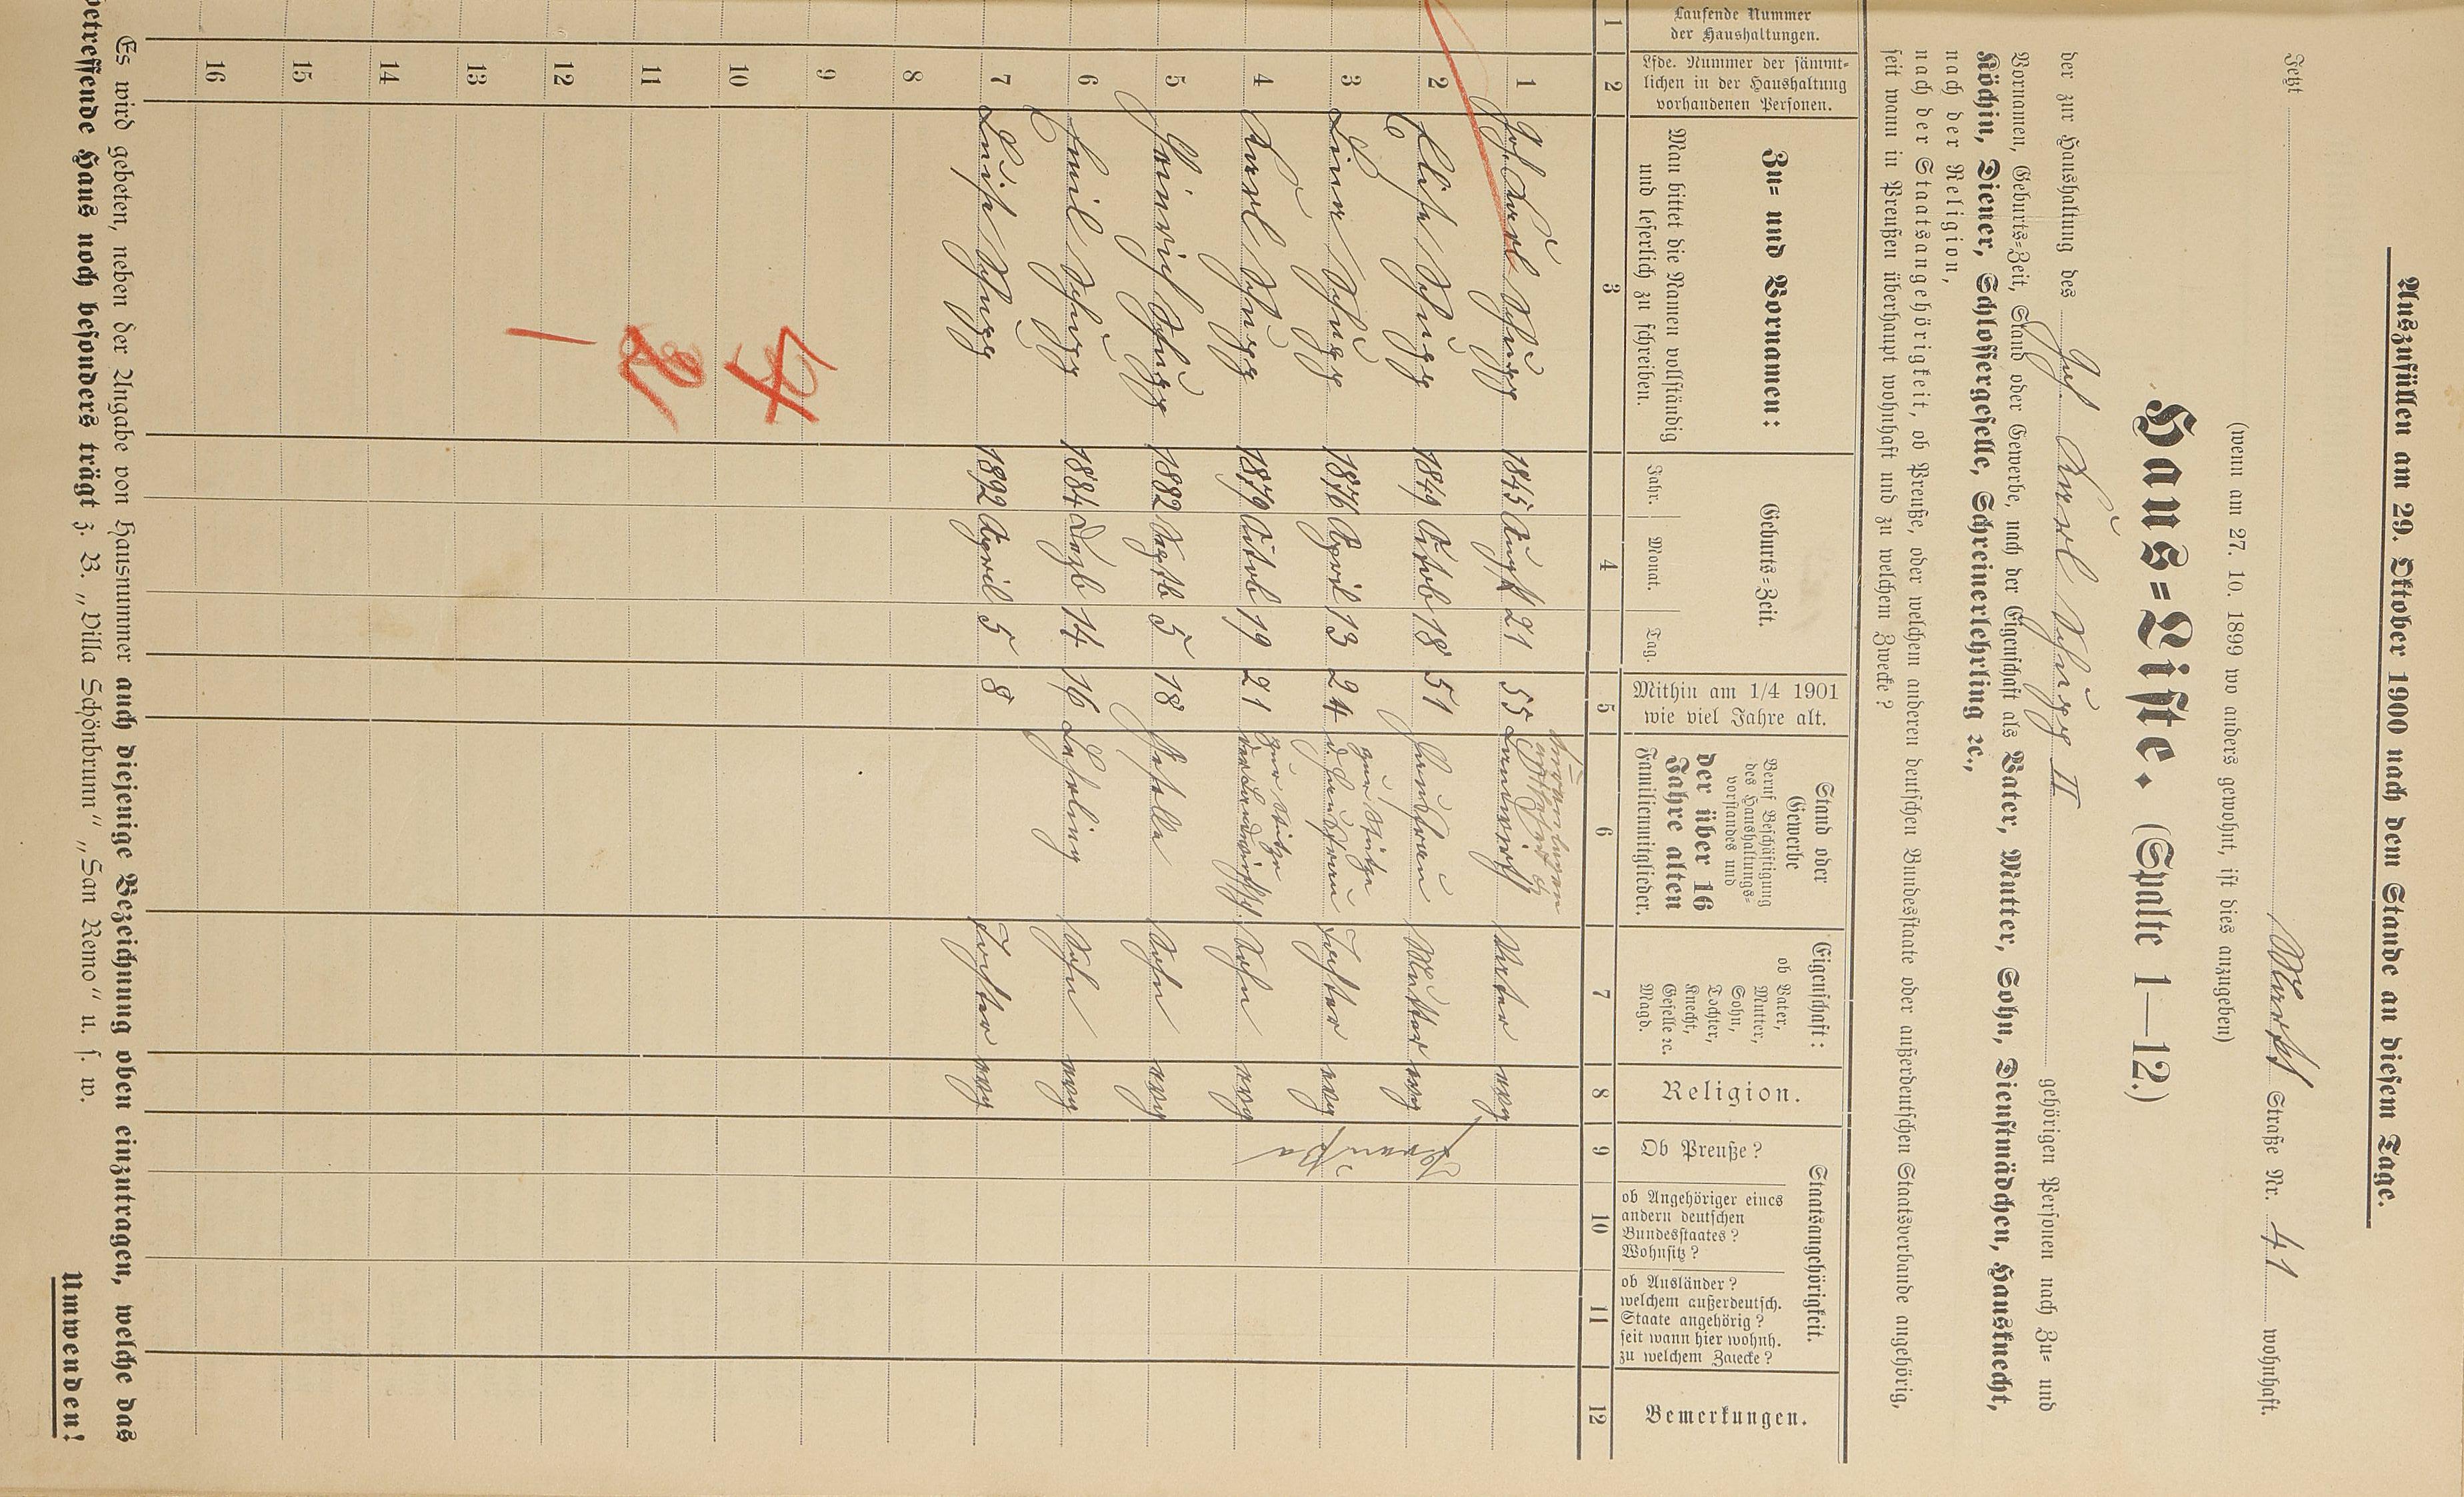 Auszufüllen am 29. Oktober 1900 nach dem Stande an diesem Tage.
Jetzt Markt Straße Nr. 41 wohnhaft.
(wenn am 27. 10. 1899 wo anders gewohnt, ist dies anzugeben)
Haus=Liste. (Spalte 1—12.)
der zur Haushaltung des Joh. Karl Schupp II gehörigen Personen nach Zu= und
Vornamen, Geburts=Zeit, Stand oder Gewerbe, nach der Eigenschaft als Vater, Mutter, Sohn, Dienstmädchen, Hausknecht,
Köchin, Diener, Schlossergeselle, Schreinerlehrling ꝛc.,
nach der Religion,
nach der Staatsangehörigkeit, ob Preuße, oder welchem anderen deutschen Bundesstaate oder außerdeutschen Staatsverbande angehörig,
seit wann in Preußen überhaupt wohnhaft und zu welchem Zwecke?
Laufende Nummer
der Haushaltungen.
Lfde. Nummer der sämmt-
lichen in der Haushaltung
vorhandenen Personen.
Zu= und Vornamen:
Man bittet die Namen vollständig
und leserlich zu schreiben.
Geburts=Zeit.
Jahr. Monat. Tag.
Mithin am 1/4 1901
wie viel Jahre alt.
Stand oder
Gewerbe
Beruf Beschäftigung
des Haushaltungs-
vorstandes und
der über 16
Jahre alten
Familienmitglieder.
Eigenschaft:
ob Vater,
Mutter,
Sohn,
Tochter,
Knecht,
Geselle ꝛc.
Magd.
Religion.
Staatsangehörigkeit.
Ob Preuße?
ob Angehöriger eines
andern deutschen
Bundesstaates?
Wohnsitz?
ob Ausländer?
welchem außerdeutsch.
Staate angehörig?
seit wann hier wohnh.
zu welchem Zwecke?
Bemerkungen.
1 2 3 4 5 6 7 8 9 10 11 12
1 Joh. Karl Schupp 1845 August 21 55 Landwirth Vater evg
2 Elise Schupp 1849 Octob 18 51 Hausfrau Mutter evg Preuße
3 Lina Schupp 1876 April 13 24 zur Stütze d. Hausfrau Tochter evg
4 Karl Schupp 1879 Octob 19 21 zur Stütze der Landwirthsch. Sohn evg
5 Heinrich Schupp 1882 Septb 5 18 Geselle Sohn evg
6 Emil Schupp 1884 Dezb 14 16 Lehrling Sohn evg
7 Luise Schupp 1892 April 5 8 Tochter evg
8
9
10
11
12
13
14
15
16
Es wird gebeten, neben der Angabe von Hausnummer auch diejenige Bezeichnung oben einzutragen, welche das
betreffende Haus noch besonders trägt z. B. „Villa Schönbrunn“ „San Remo“ u. s. w.
Umwenden!